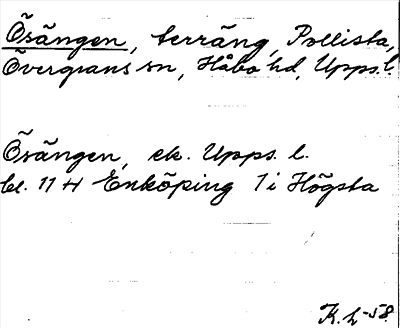 Örängen, terräng, Pollista,
Övergrans sn, Håbo hd, Upps. l.
Örängen, ek. Upps. l.
bl. 11 H Enköping 7 i Högsta
K. L -58.